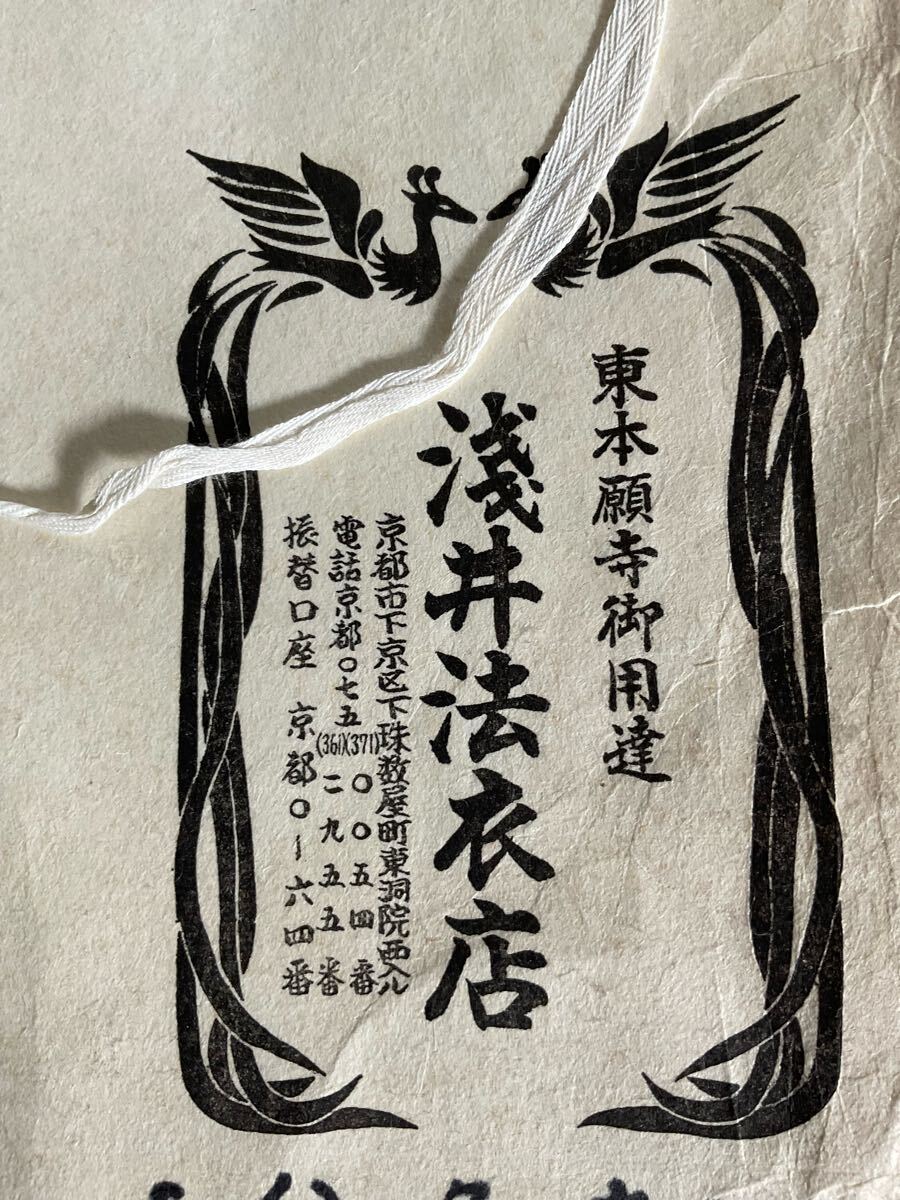 東本願寺御用達
淺井法衣店
京都市下京区下珠数屋町東洞院西入ル
電話京都〇七五(371)〇〇五四番
(361)二九五五番
振替口座 京都〇一六四番